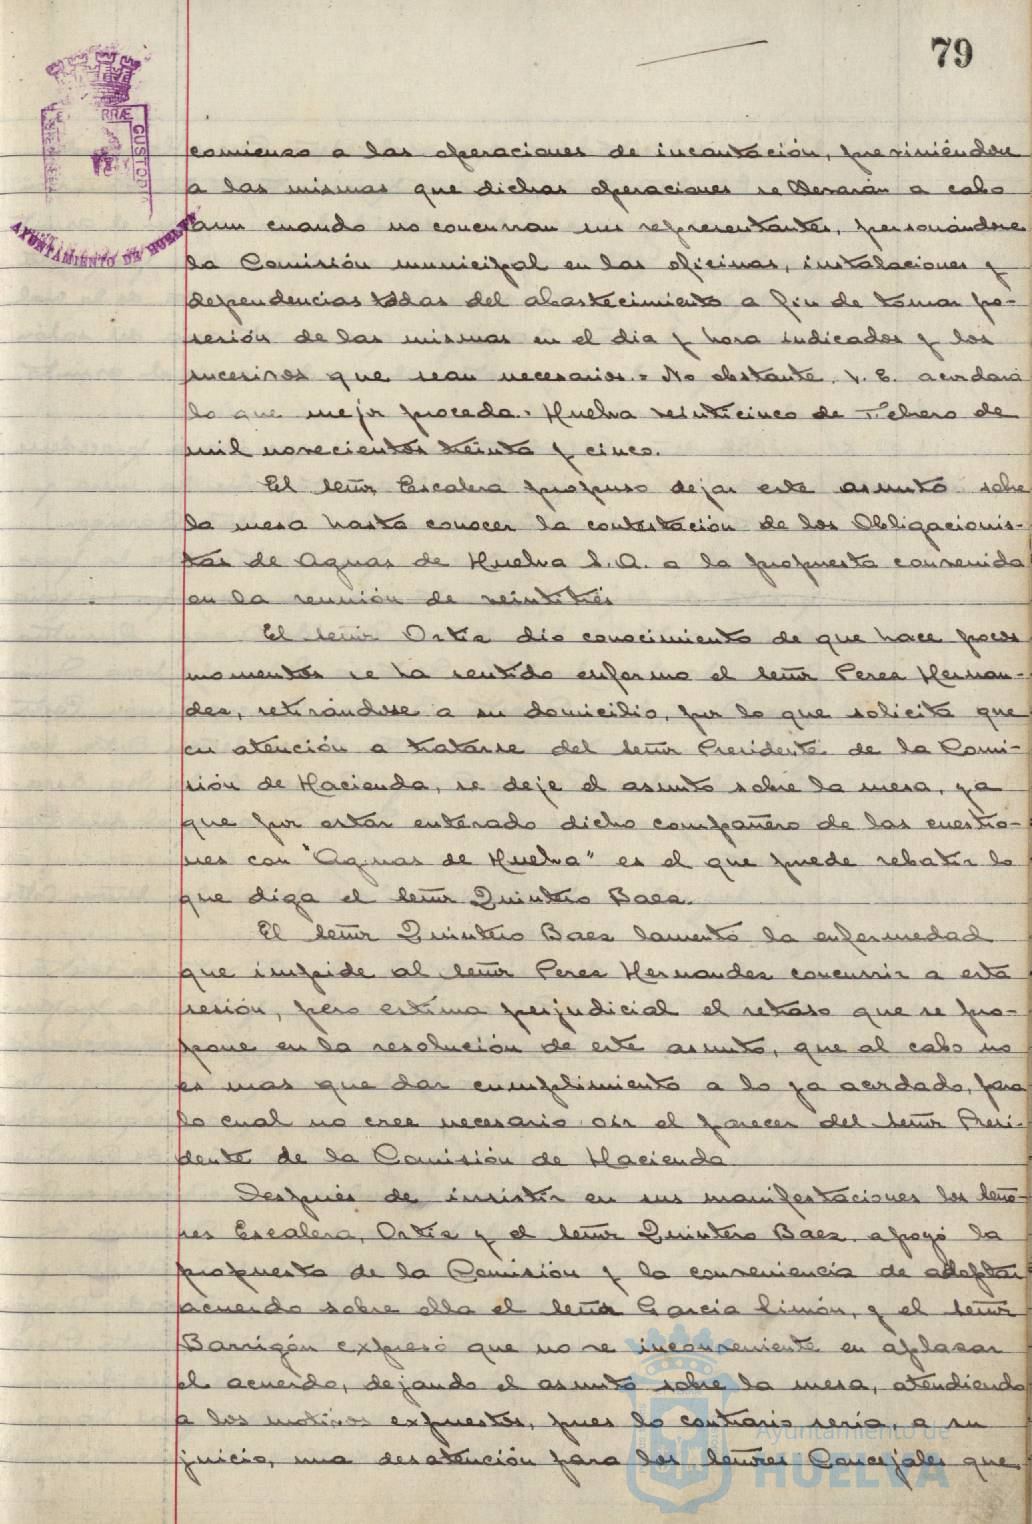 79
RRÆ CUSTODI
AYUNTAMIENTO DE HUELVA
comienzo a las operaciones de incautación, previniéndose
a las mismas que dichas operaciones se llevarán a cabo
aun cuando no concurran sus representantes, personándose
la Comisión municipal en las oficinas, instalaciones y
dependencias todas del abastecimiento a fin de tomar po-
sesión de las mismas en el dia y hora indicados y los
sucesivos que sean necesarios. = No obstante, V. E. acordará
lo que mejor proceda. Huelva veinticinco de Febrero de
mil novecientos treinta y cinco.
El señor Escalera propuso dejar este asunto sobre
la mesa hasta conocer la contestación de los Obligacionis-
tas de Aguas de Huelva S. A. a la propuesta convenida
en la reunión de veintitrés
El señor Ortiz dió conocimiento de que hace pocos
momentos se ha sentido enfermo el señor Perez Hernan-
dez, retirándose a su domicilio, por lo que solicita que
en atención a tratarse del señor Presidente de la Comi-
sión de Hacienda, se deje el asunto sobre la mesa, ya
que por estar enterado dicho compañero de las cuestio-
nes con "Aguas de Huelva" es el que puede rebatir lo
que diga el señor Quintero Baez.
El señor Quintero Baez lamentó la enfermedad
que impide al señor Perez Hernandez concurrir a esta
sesión, pero estima perjudicial el retraso que se pro-
pone en la resolución de este asunto, que al cabo no
es mas que dar cumplimiento a lo ya acordado, para
lo cual no cree necesario oir el parecer del señor Presi-
dente de la Comisión de Hacienda
Después de insistir en sus manifestaciones los seño-
res Escalera, Ortiz y el señor Quintero Baez, apoyó la
propuesta de la Comisión y la conveniencia de adoptar
acuerdo sobre ella el señor Garcia Limón, y el señor
Barrigón expresó que no ve inconveniente en aplazar
el acuerdo, dejando el asunto sobre la mesa, atendiendo
a los motivos expuestos, pues lo contrario seria, a su
juicio, una desatención para los señores Concejales que
Ayuntamiento de
HUELVA